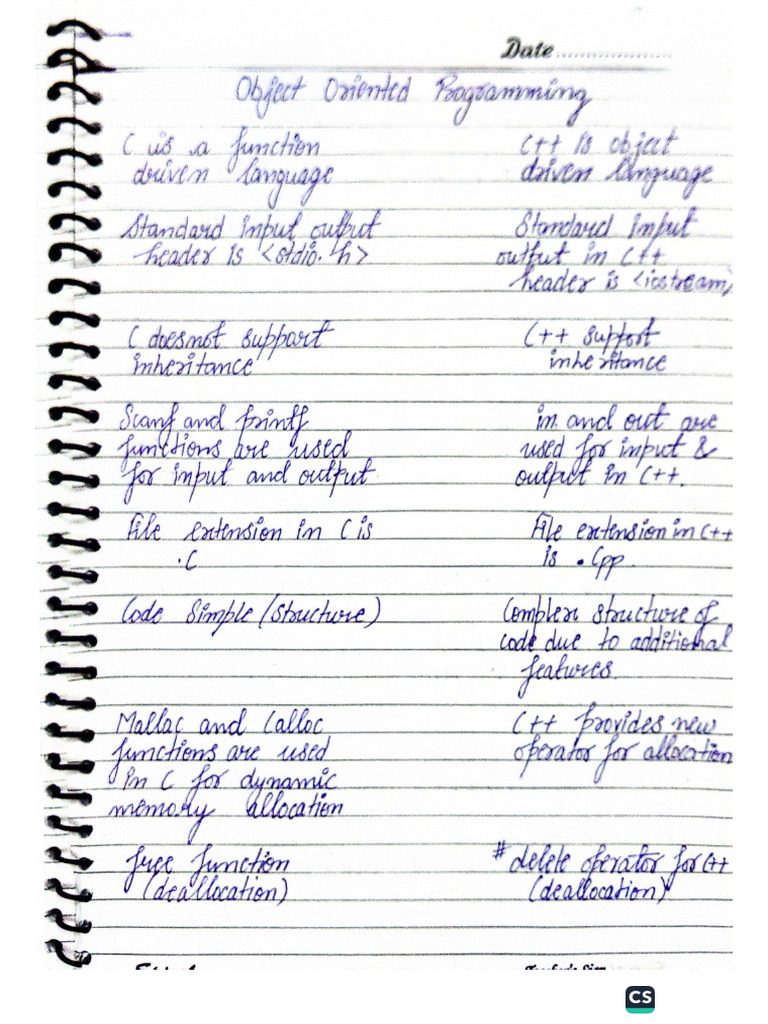 Date
Object Oriented Programming
C is a function
driven language
C++ is object
driven language
Standard input output
header is <stdio.h>
Standard input
output in C++
header is <iostream>
C doesnot support
inheritance
C++ support
inheritance
Scanf and printf
functions are used
for input and output
in and out are
used for input &
output in C++.
File extension in C is
.C
File extension in C++
is .Cpp
Code Simple (Structure)
Complex structure of
code due to additional
features.
Mallac and Calloc
functions are used
in C for dynamic
memory allocation
C++ provides new
operator for allocation
free function
(deallocation)
# delete operator for C++
(deallocation)
CS